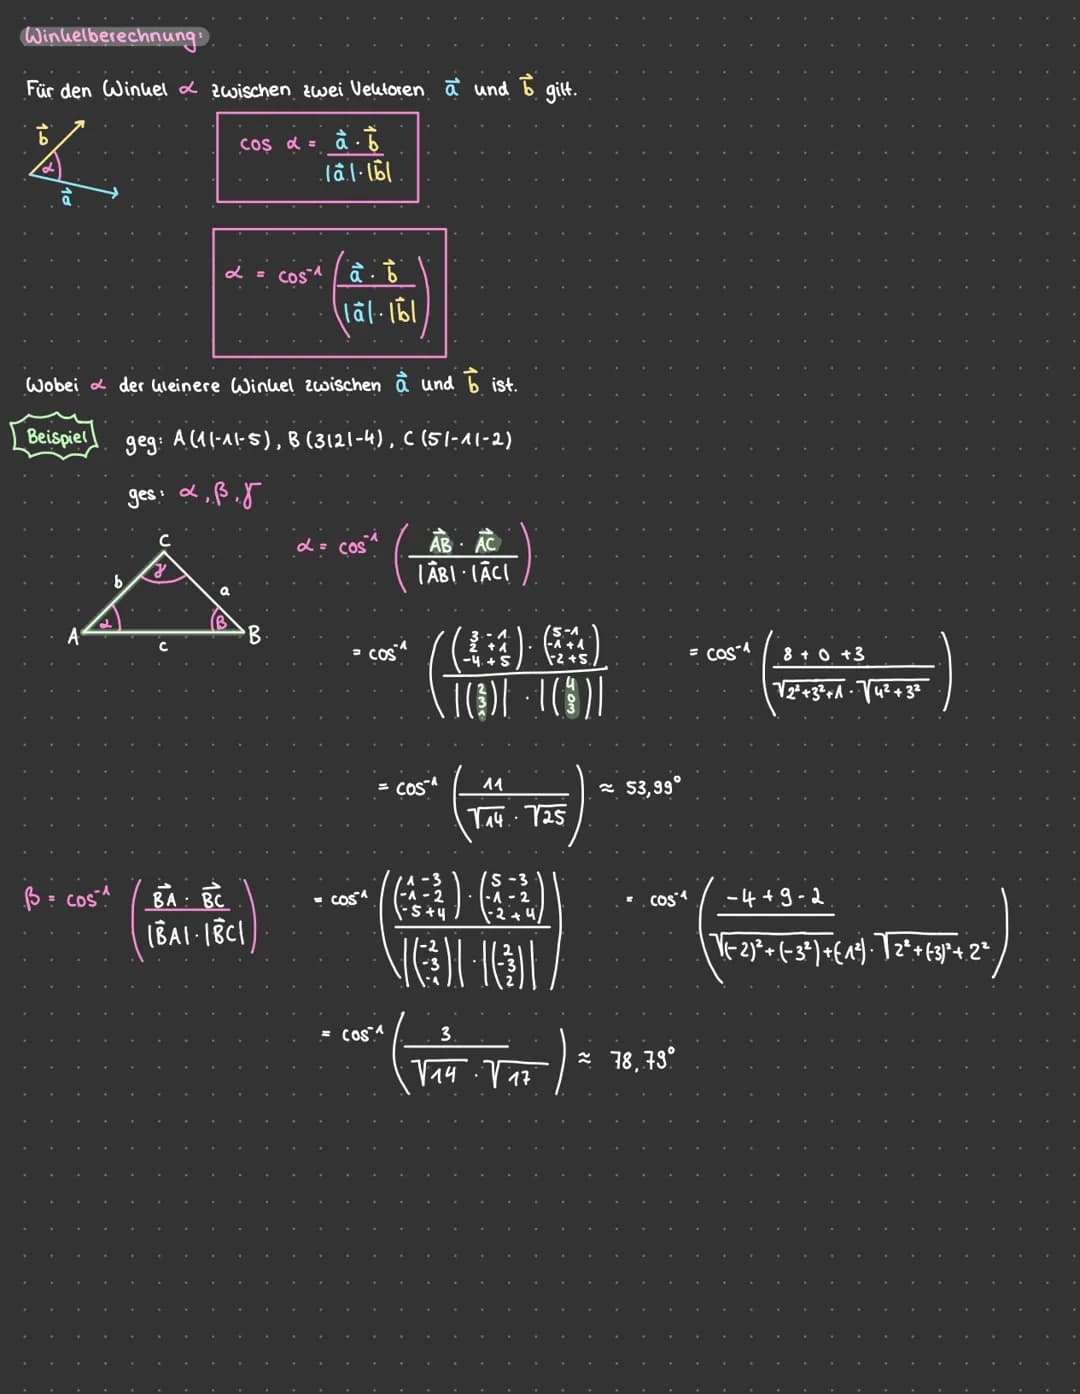 Winkelberechnung:
Für den Winkel α zwischen zwei Vektoren a⃗ und b⃗ gilt.
b⃗
α
a⃗
cos α = (a⃗ · b⃗) / (|a⃗| · |b⃗|)
α = cos⁻¹ ( (a⃗ · b⃗) / (|a⃗| · |b⃗|) )
Wobei α der kleinere Winkel zwischen a⃗ und b⃗ ist.
Beispiel geg: A(1|-1|-5), B(3|2|-4), C(5|-1|-2)
ges: α, β, γ
C
γ
b a
α β
A B
c
α = cos⁻¹ ( (AB⃗ · AC⃗) / (|AB⃗| · |AC⃗|) )
= cos⁻¹ ( ((3-1, 2+1, -4+5) · (5-1, -1+1, -2+5)) / (|(2, 3, 1)| · |(4, 0, 3)|) ) = cos⁻¹ ( (8 + 0 + 3) / (√(2²+3²+1) · √(4²+3²)) )
= cos⁻¹ ( 11 / (√14 · √25) ) ≈ 53,99°
β = cos⁻¹ ( (BA⃗ · BC⃗) / (|BA⃗| · |BC⃗|) ) = cos⁻¹ ( ((1-3, -1-2, -5+4) · (5-3, -1-2, -2+4)) / (|(-2, -3, -1)| · |(2, -3, 2)|) ) = cos⁻¹ ( (-4+9-2) / (√((-2)²+(-3²)+(-1²)) · √(2²+(-3)²+2²)) )
= cos⁻¹ ( 3 / (√14 · √17) ) ≈ 78,79°